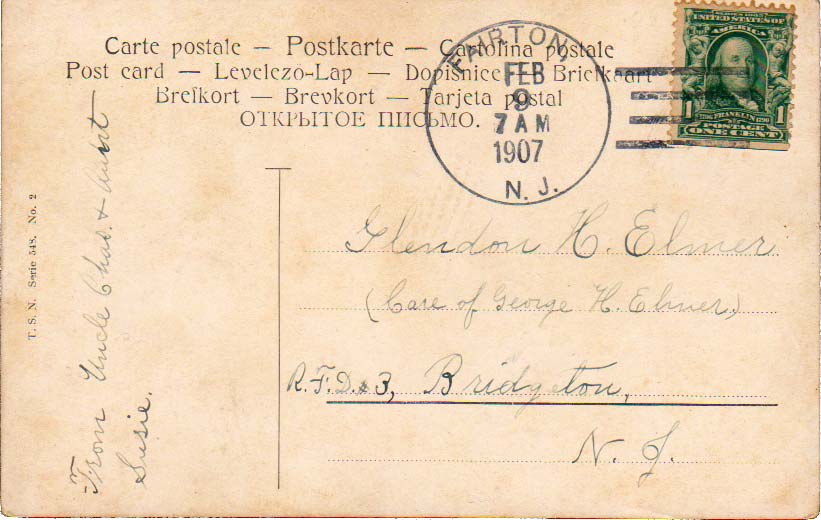 Carte postale — Postkarte — Cartolina postale
Post card — Levelezö-Lap — Dopisnice — Briefkaart
Brefkort — Brevkort — Tarjeta postal
ОТКРЫТОЕ ПИСЬМО.
FAIRTON,
FEB
9
7 AM
1907
N. J.
UNITED STATES OF
AMERICA
1 1
1706 FRANKLIN 1790
POSTAGE
ONE CENT
Glendon H. Elmer
(Care of George H. Elmer)
R.F.D. 3, Bridgeton,
N. J.
From Uncle Chas. & Aunt
Susie.
T. S. N. Serie 548. No. 2